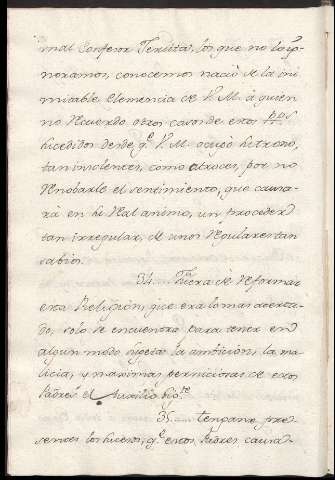 mal Confesor Jesuita, los que no lo ig-
noramos, conocemos nació de la ini
mitable Clemencia de V. M. à quien
no recuerdo otros casos de estos
sucedidos desde qe. V. M. ocupó su trono,
tan insolentes, como atroces, por no
renobarle el sentimiento, que causa-
rà en su Real animo, un proceder
tan irregular, de unos Regulares tan
sabios.
34.... Fuera de reformar
esta Religion, que era lo mas acerta-
do, solo se encuentra para tener en
algun modo sugetas la ambicion, la ma
licia, y maximas perniciosas de estos
Padres el Auxilio
35.... tengan pre-
sentes los sucesos, qe. estos Padres causa-